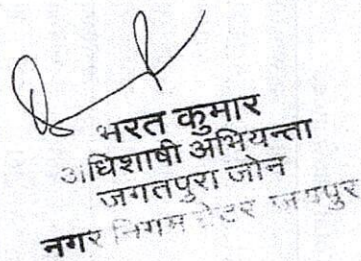 भरत कुमार
अधिशाषी अभियन्ता
जगतपुरा जोन
नगर निगम ग्रेटर जयपुर